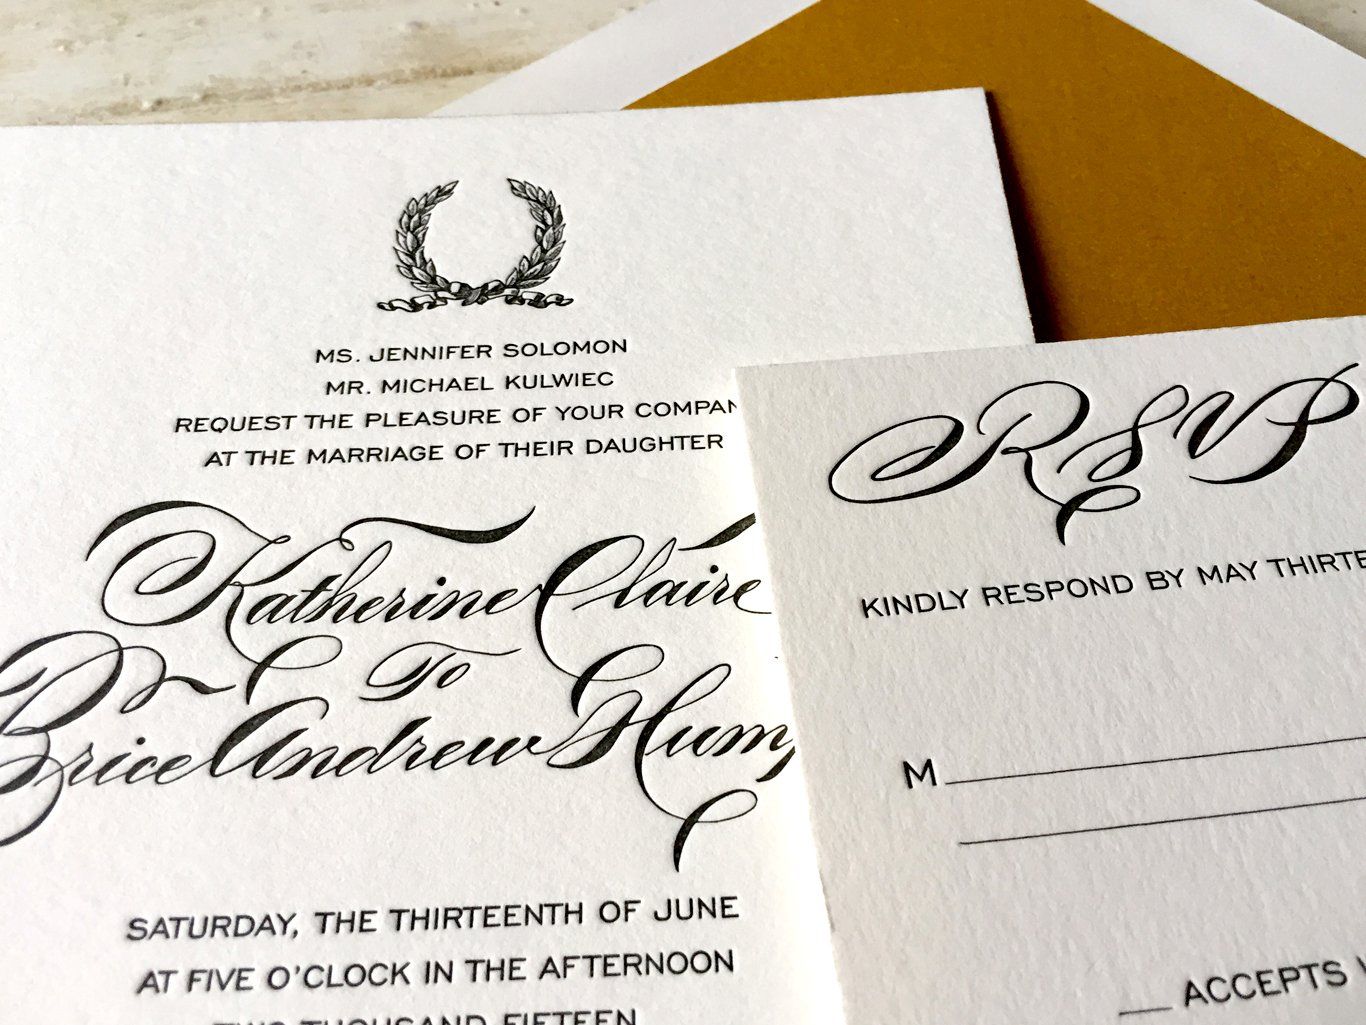 MS. JENNIFER SOLOMON
MR. MICHAEL KULWIEC
REQUEST THE PLEASURE OF YOUR COMPAN
AT THE MARRIAGE OF THEIR DAUGHTER
Katherine Claire
To
Brice Andrew Hump
SATURDAY, THE THIRTEENTH OF JUNE
AT FIVE O'CLOCK IN THE AFTERNOON
TWO THOUSAND FIFTEEN
RSVP
KINDLY RESPOND BY MAY THIRTE
M
ACCEPTS